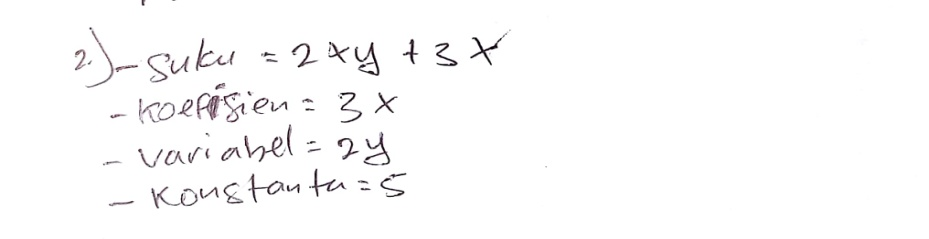 2.) - Suku = 2xy + 3x
- Koefisien = 3x
- Variabel = 2y
- Konstanta = 5